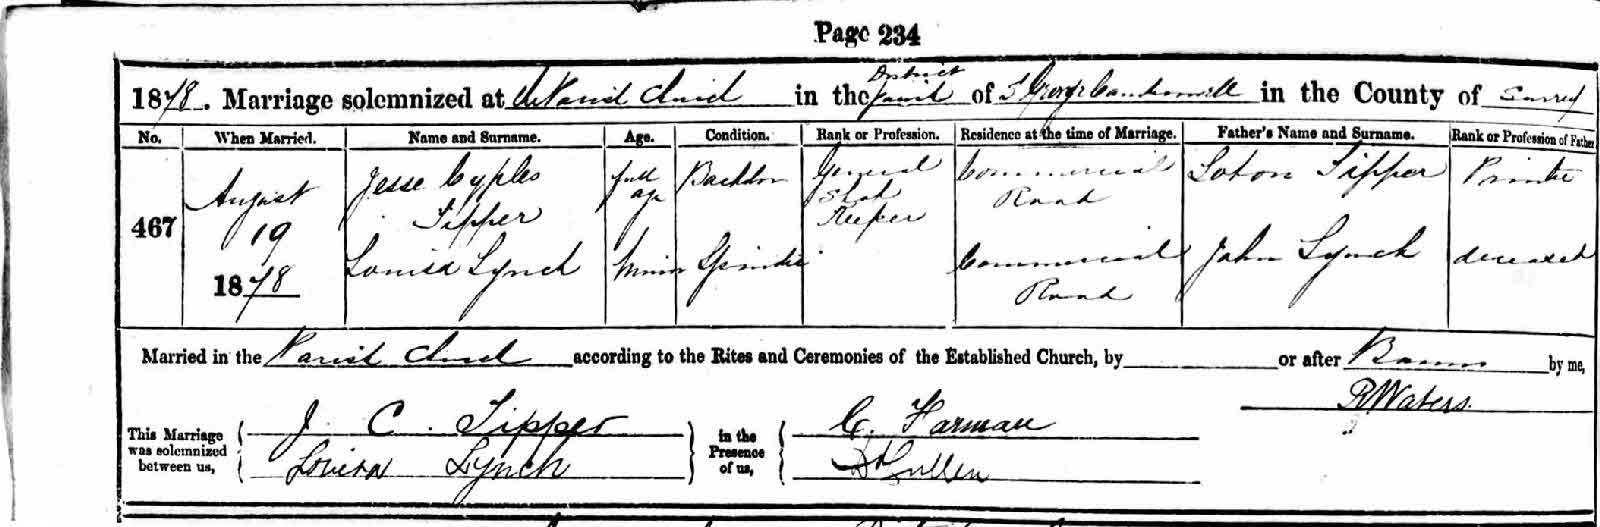 Page 234
1878. Marriage solemnized at the Parish Church in the District Parish of St George Camberwell in the County of Surrey
No. When Married. Name and Surname. Age. Condition. Rank or Profession. Residence at the time of Marriage. Father's Name and Surname. Rank or Profession of Father
467 August 19 1878 Jesse Cyples Tipper full age Bachelor General Shop Keeper Commercial Road Loton Tipper Printer
Louisa Lynch Minor Spinster Commercial Road John Lynch deceased
Married in the Parish Church according to the Rites and Ceremonies of the Established Church, by or after Banns by me,
R Waters.
This Marriage was solemnized between us, J. C. Tipper in the Presence of us, C. Farman
Louisa Lynch Cullen